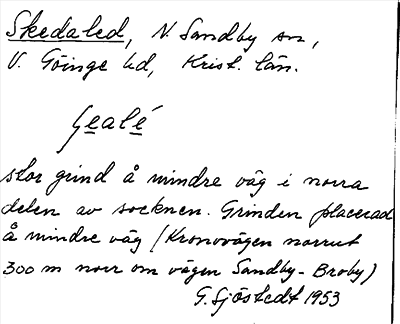 Skedaled, N. Sandby sn,
V. Göinge hd, Krist. län.
Gealé
stor grind å mindre väg i norra
delen av socknen. Grinden placerad
å mindre väg (Kronovägen norrut
300 m norr om vägen Sandby - Broby)
G. Sjöstedt 1953